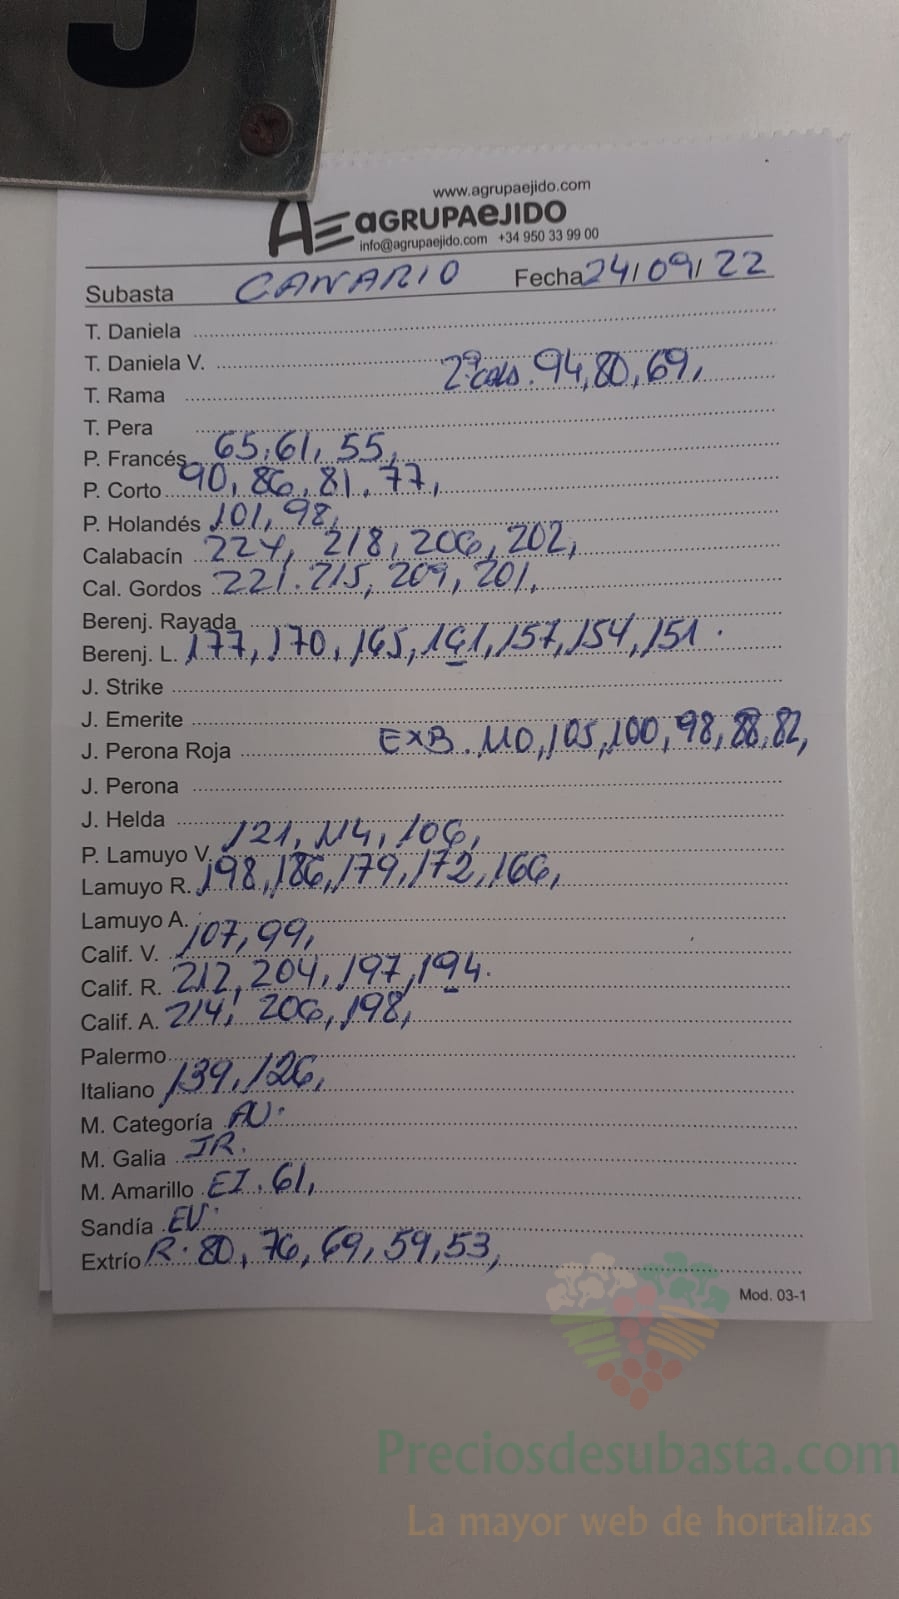 www.agrupaejido.com
AE aGRUPAeJIDO
info@agrupaejido.com +34 950 33 99 00
Subasta CANARIO Fecha 24/09/22
T. Daniela
T. Daniela V.
T. Rama 2ºcols. 94, 80, 69,
T. Pera
P. Francés 65, 61, 55,
P. Corto 90, 86, 81, 77,
P. Holandés 101, 98,
Calabacín 224, 218, 206, 202,
Cal. Gordos 221. 215, 209, 201,
Berenj. Rayada
Berenj. L. 177, 170, 165, 161, 157, 154, 151.
J. Strike
J. Emerite
J. Perona Roja EXB. 110, 105, 100, 98, 88, 82,
J. Perona
J. Helda
P. Lamuyo V. 121, 114, 106,
Lamuyo R. 198, 186, 179, 172, 166,
Lamuyo A.
Calif. V. 107, 99,
Calif. R. 212, 204, 197, 194.
Calif. A. 214, 206, 198,
Palermo
Italiano 139, 126,
M. Categoría AU.
M. Galia JR.
M. Amarillo EI. 61,
Sandía EU.
Extrío R. 80, 76, 69, 59, 53,
Mod. 03-1
Preciosdesubasta.com
La mayor web de hortalizas